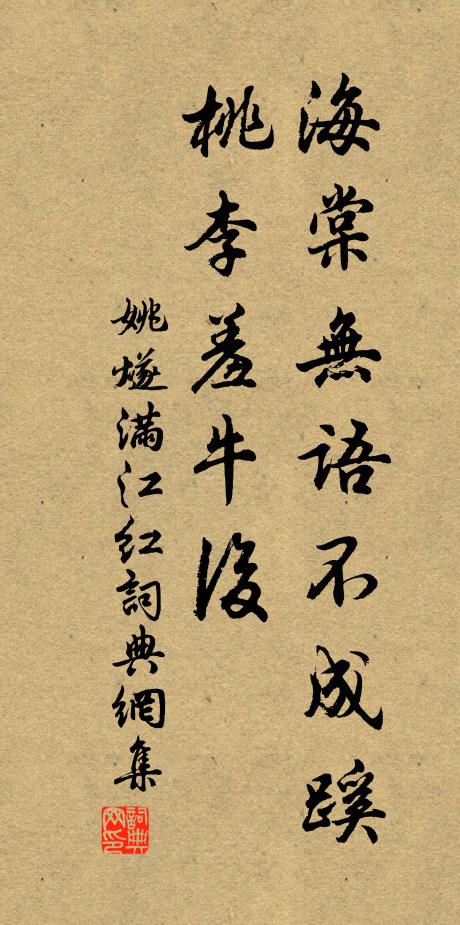 海棠無語不成蹊
桃李羞牛後
姚燧满江红詞典網集
詞典网印